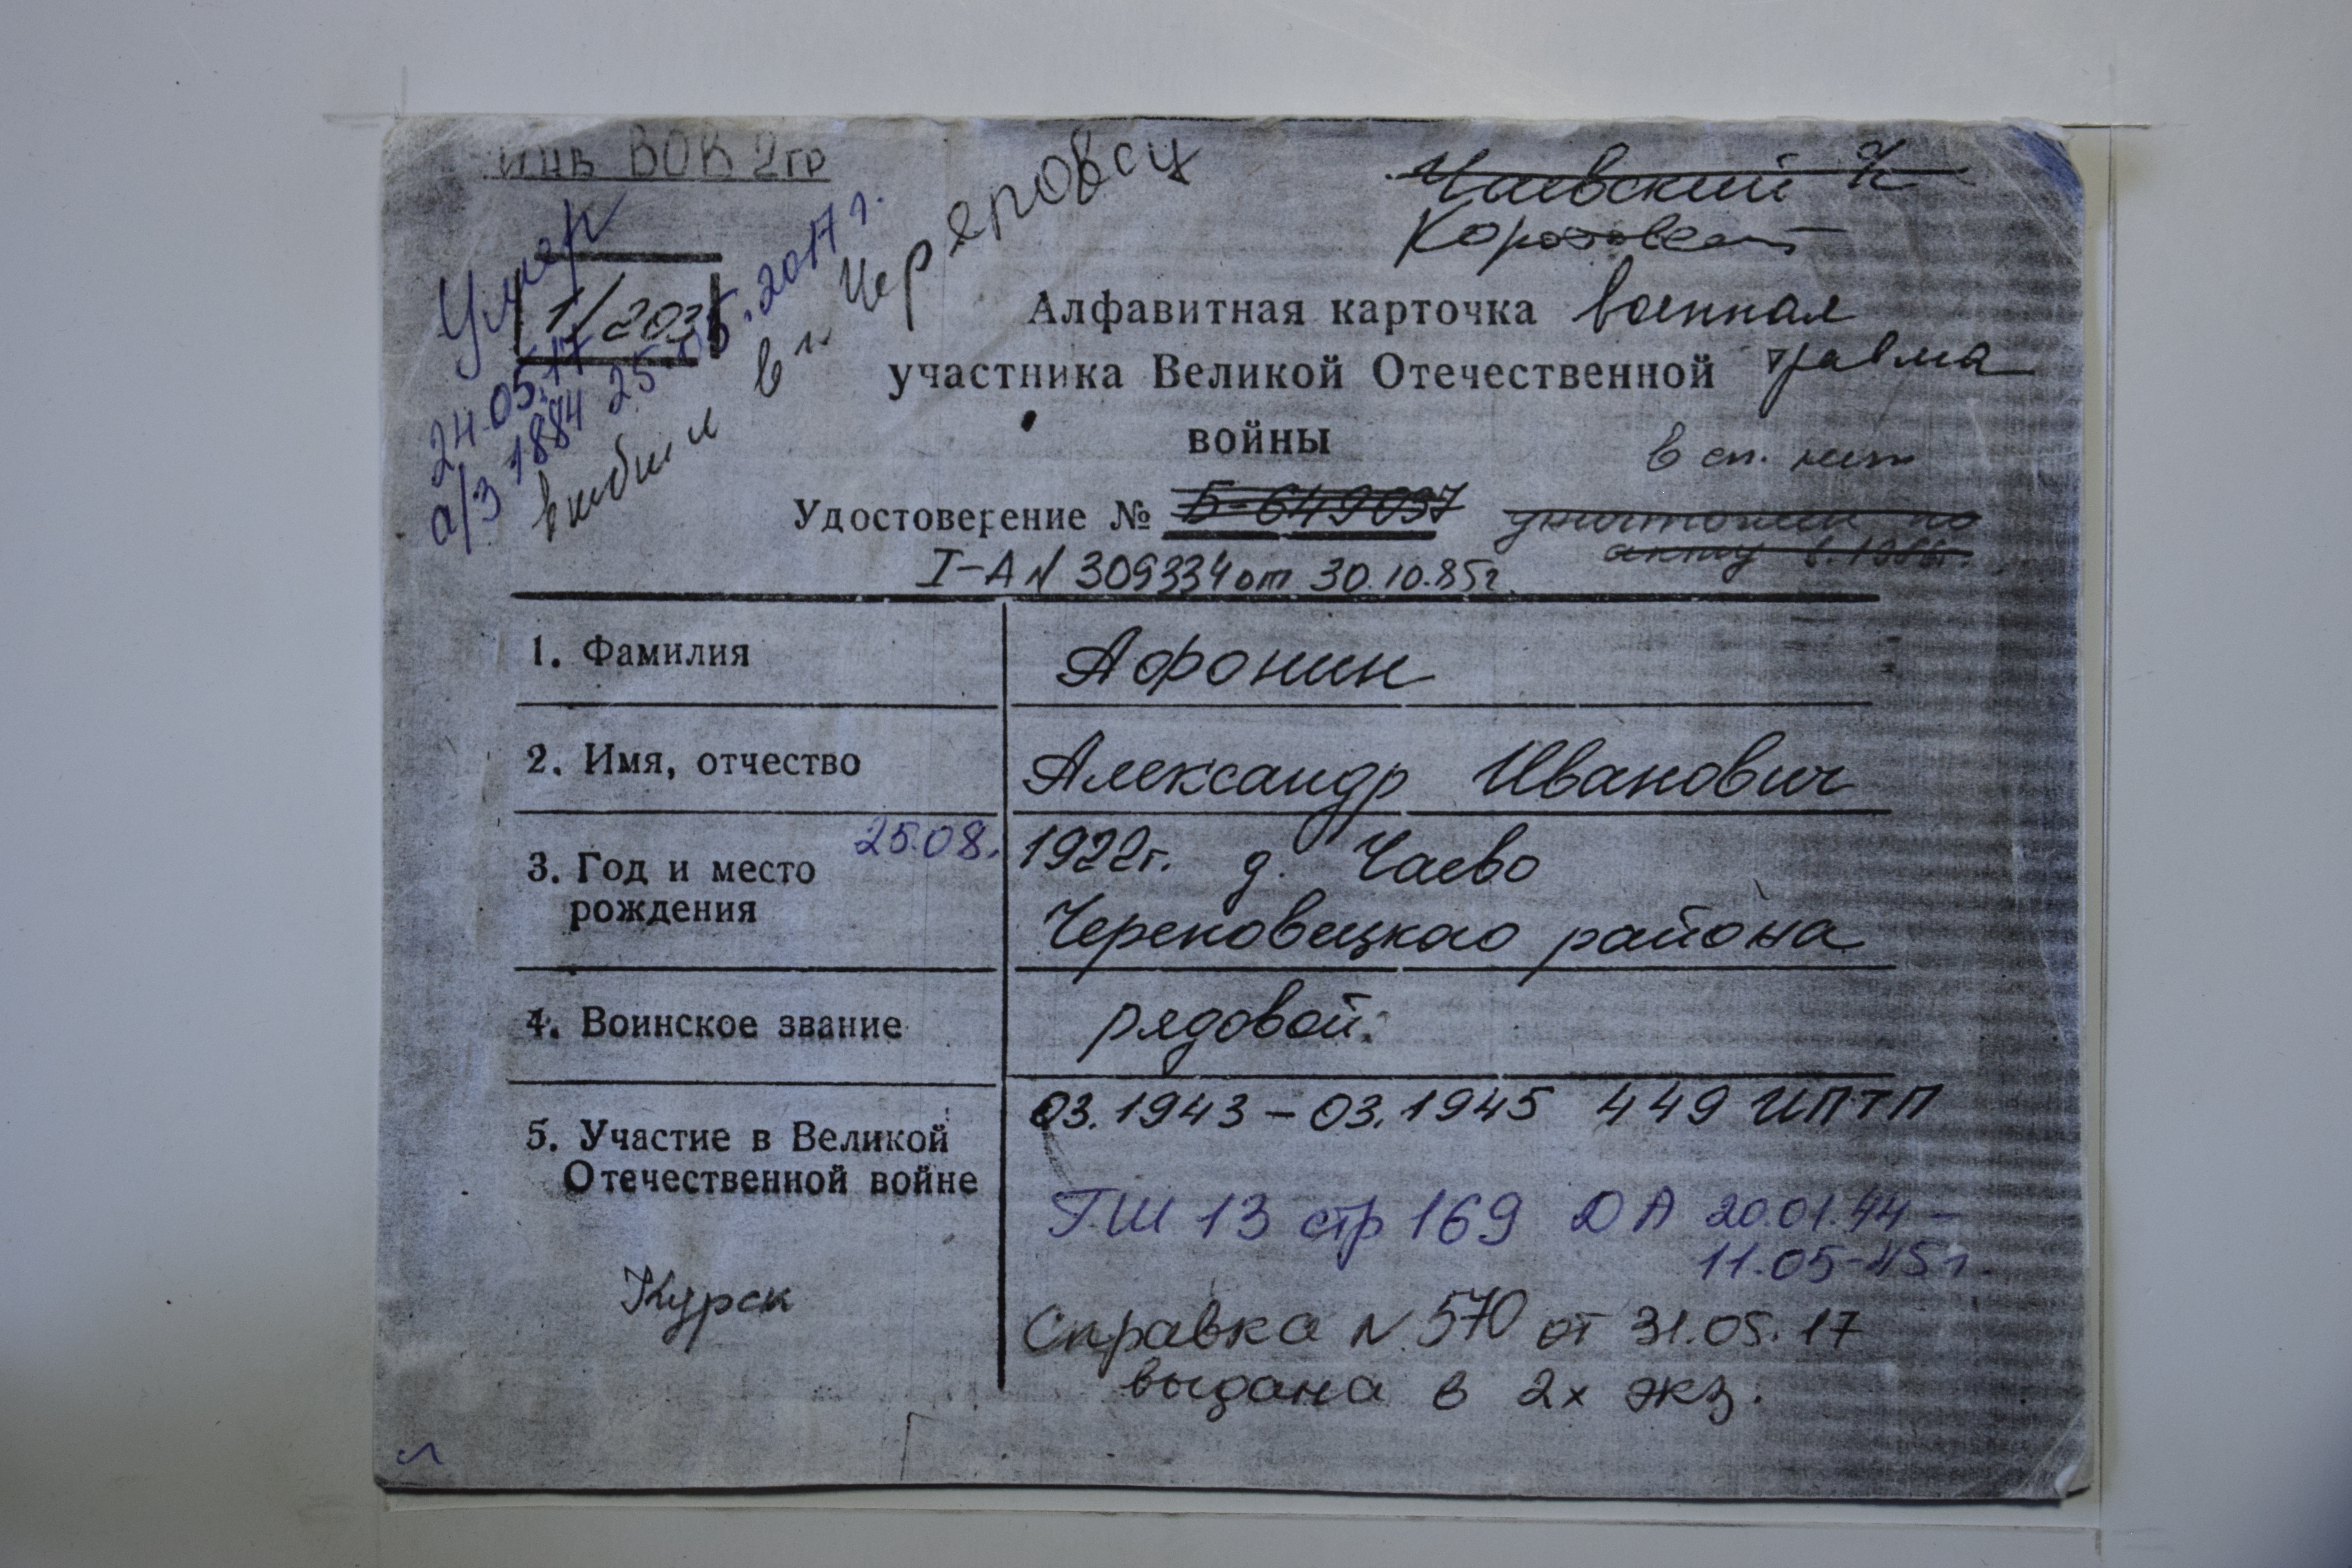 Инв ВОВ 2гр
Умер
24.05.17
а/з 1884 25.05.2017г.
выбыл в г. Череповец
1/203
Чаевский
Алфавитная карточка военная
участника Великой Отечественной травма
войны
в сп. нет
Удостоверение № Б-649037 уничтожен по
акту
I-А N 309334 от 30.10.85г.
1. Фамилия
Афонин
2. Имя, отчество
Александр Иванович
3. Год и место
рождения
25.08.
1922г. д. Чаево
Череповецкого района
4. Воинское звание
рядовой.
5. Участие в Великой
Отечественной войне
03.1943 – 03.1945 449 ИПТП
ГШ 13 стр 169 ДА 20.01.44 –
11.05-45г.
Курск
Справка N 570 от 31.05.17
выдана в 2х экз.